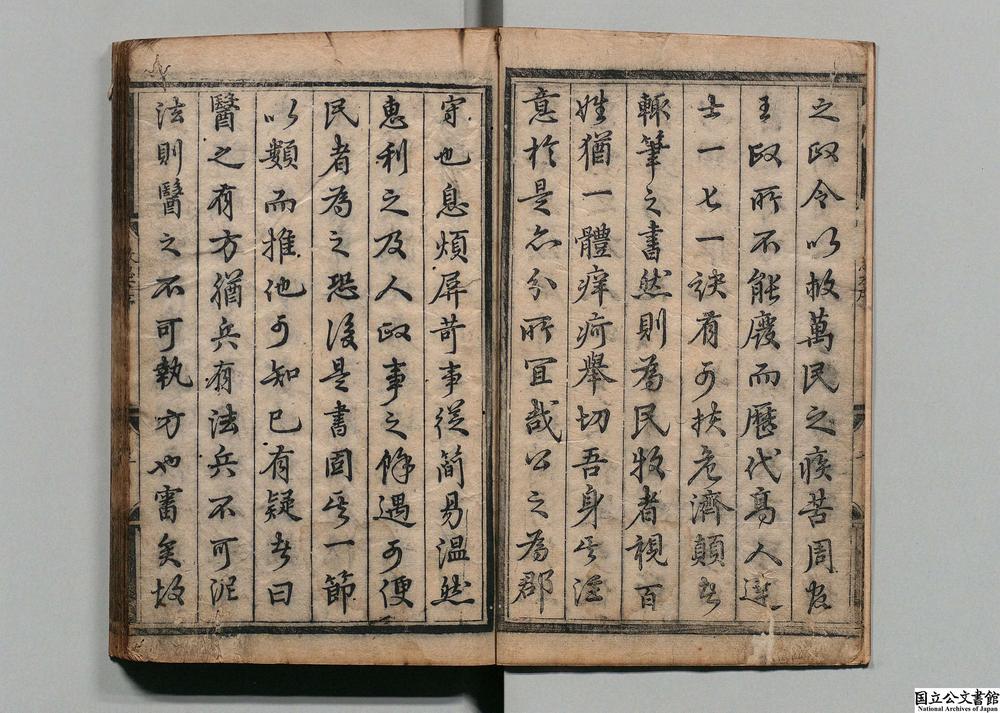 之政令以救萬民之疾苦周官
王政所不能廢而歷代高人達
士一七一訣有可扶危濟顛者
輒筆之書然則為民牧者視百
姓猶一體痒疴舉切吾身其注
意於是亦分所宜哉公之為郡
守也息煩屏苛事從簡易溫然
惠利之及人政事之餘遇可便
民者為之恐後是書固其一節
以類而推他可知已有疑者曰
醫之有方猶兵有法兵不可泥
法則醫之不可執方也審矣故
国立公文書館
National Archives of Japan